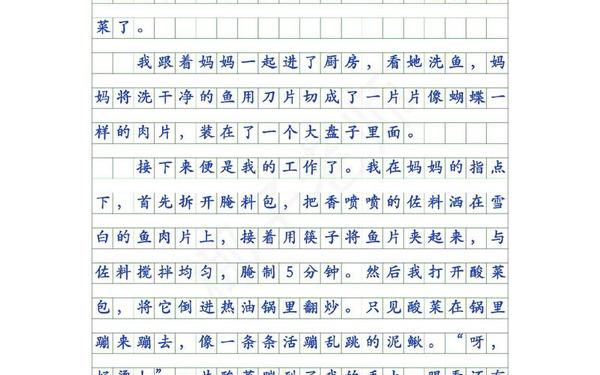 菜了。
我跟着妈妈一起进了厨房，看她洗鱼，妈
妈将洗干净的鱼用刀片切成了一片片像蝴蝶一
样的肉片，装在了一个大盘子里面。
接下来便是我的工作了。我在妈妈的指点
下，首先拆开腌料包，把香喷喷的佐料洒在雪
白的鱼肉片上，接着用筷子将鱼片夹起来，与
佐料搅拌均匀，腌制5分钟。然后我打开酸菜
包，将它倒进热油锅里翻炒。只见酸菜在锅里
蹦来蹦去，像一条条活蹦乱跳的泥鳅。“呀，